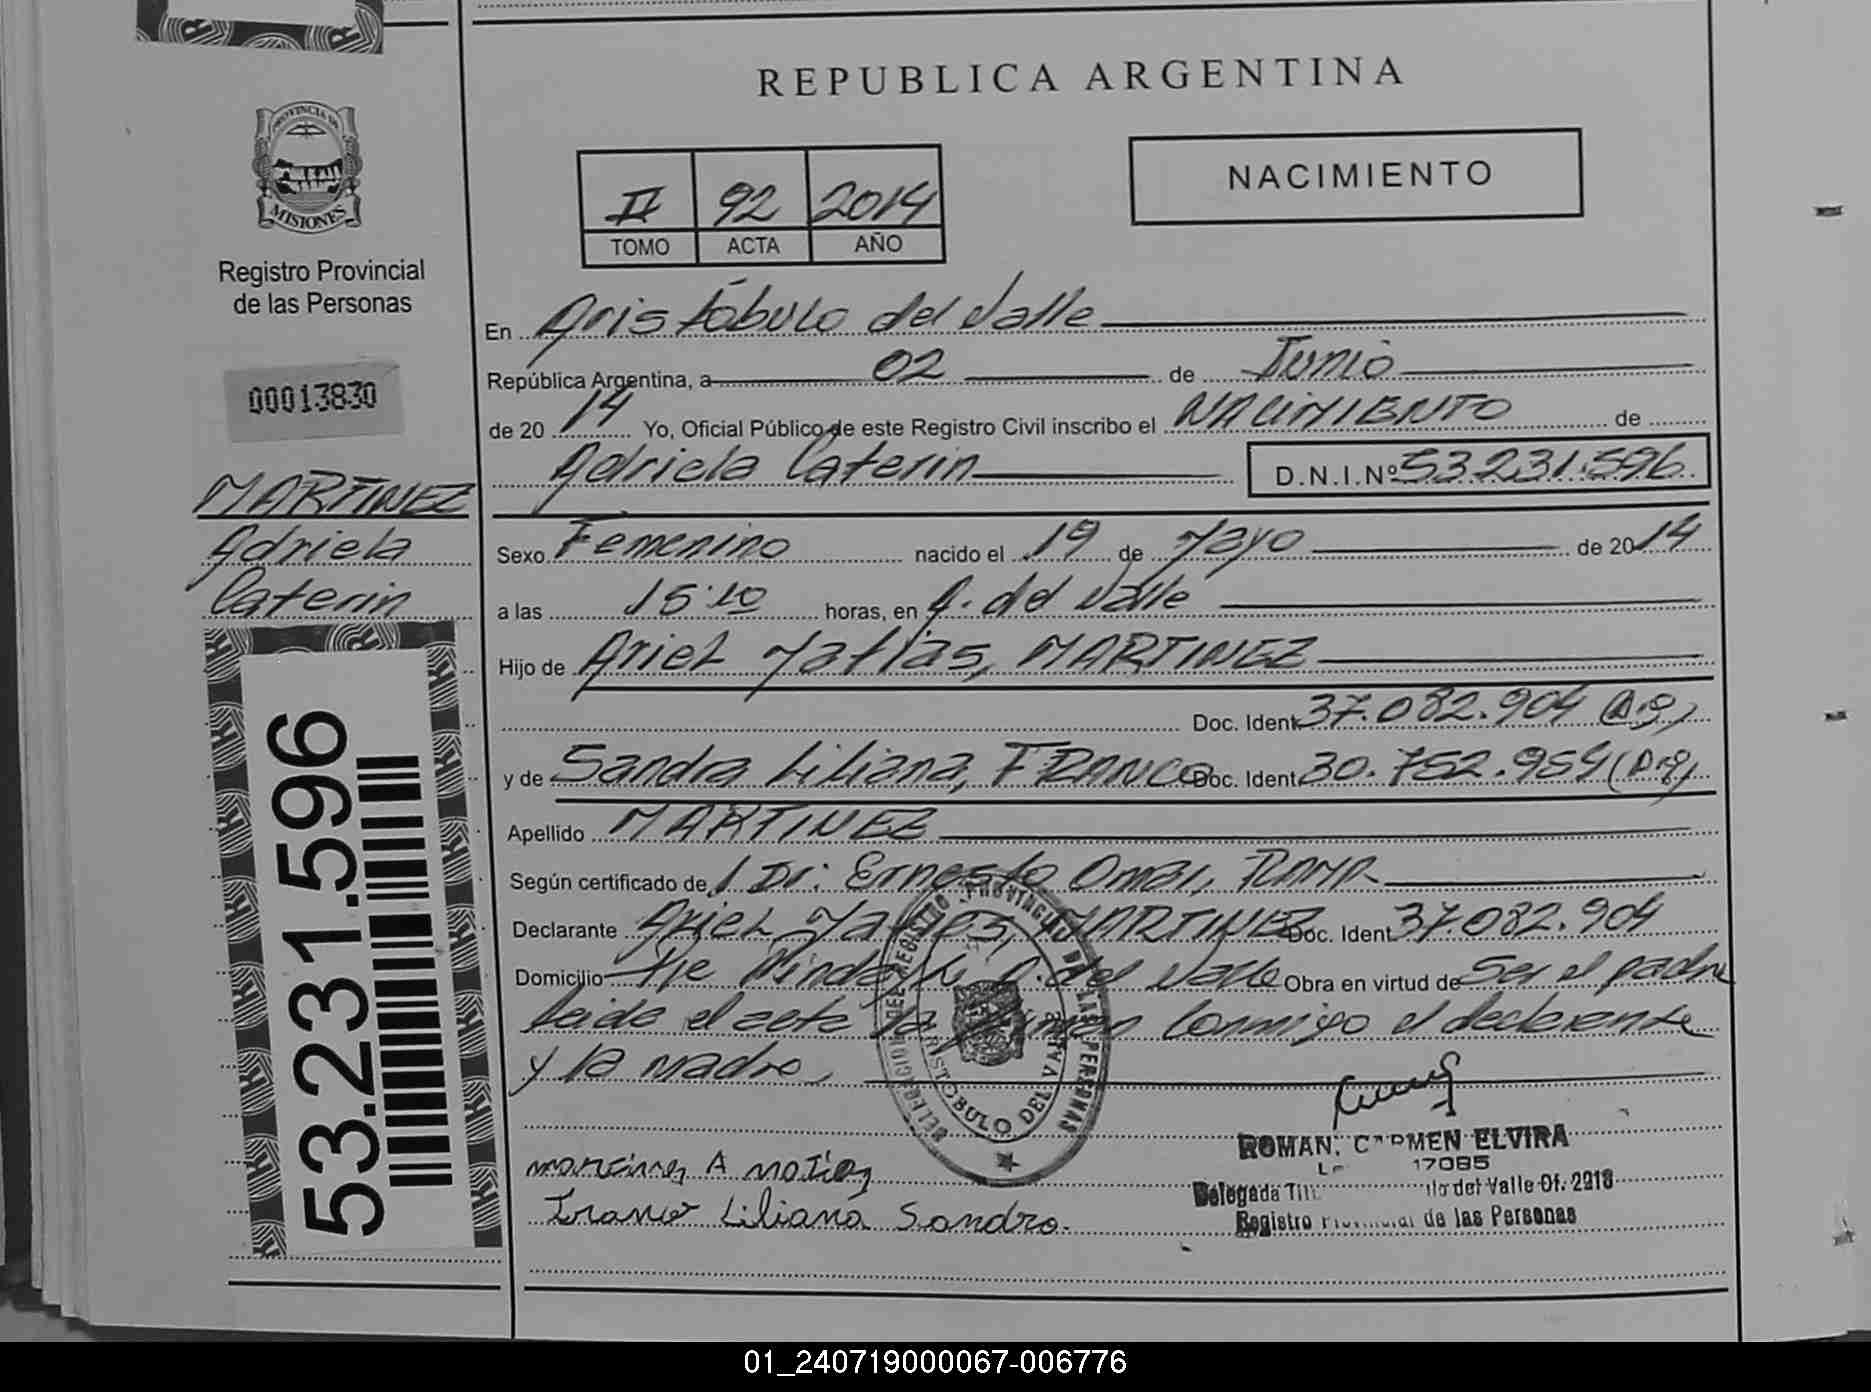 REPUBLICA ARGENTINA
PROVINCIA DE
MISIONES
Registro Provincial
de las Personas
II 92 2014
TOMO ACTA AÑO
NACIMIENTO
00013830
MARTINEZ
Adriela
Caterin
53.231.596
En Aristóbulo del Valle
República Argentina, a 02 de Junio
de 2014 Yo, Oficial Público de este Registro Civil inscribo el NACIMIENTO de
Adriela Caterin D.N.I.Nº 53.231.596.
Sexo Femenino nacido el 19 de Mayo de 2014
a las horas, en A. del Valle
Hijo de Ariel Matías, MARTINEZ
Doc. Ident. 37.082.904 (Arg)
y de Sandra Liliana, FRANCO Doc. Ident. 30.752.954 (Arg)
Apellido MARTINEZ
Según certificado de Dr. Ernesto
Declarante Ariel Matías, MARTINEZ Doc. Ident. 37.082.904
Domicilio A. del Valle Obra en virtud de Ser el padre
Leida el acta la firman conmigo el declarante
y la madre,
DELEGACION DEL REGISTRO PROVINCIAL DE LAS PERSONAS
ARISTOBULO DEL VALLE
Martinez A Matias
Franco Liliana Sandra.
ROMAN, CARMEN ELVIRA
17085
Delegada del Valle Of. 2218
Registro Provincial de las Personas
01_240719000067-006776